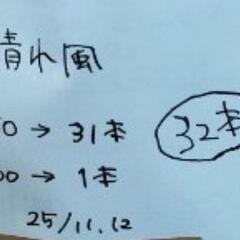 晴れ風
50 → 31本
00 → 1本
32本
25/11.12